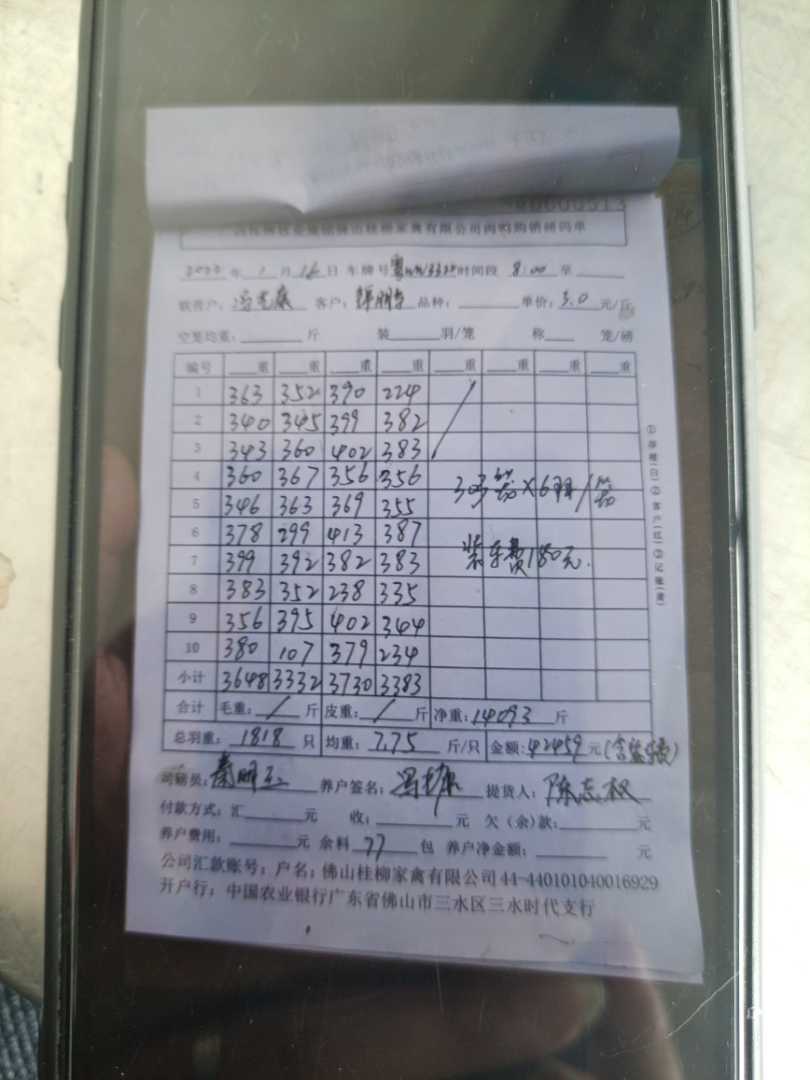 佛山桂柳家禽有限公司肉鸭购销磅码单
年 1 月 16 日 车牌号 时间段 8:00 至
联营户: 客户: 品种: 单价: 3.0 元/斤
空笼均重: 斤 装 羽/笼 称 笼/磅
编号 重 重 重 重 重 重 重 重
1 363 352 390 224
2 340 345 399 382
3 343 360 402 383
4 360 367 356 356
303 ×6羽/
5 346 363 369 355
6 378 299 413 387
7 399 392 382 383
装车费180元.
8 383 352 238 335
9 356 395 402 344
10 380 107 379 234
小计 3648 3332 3730 3383
合计 毛重: / 斤 皮重: / 斤 净重: 14093 斤
总羽重: 1818 只 均重: 7.75 斤/只 金额: 42459 元(含装车费)
司磅员: 养户签名: 提货人: 陈志权
付款方式: 汇 元 收: 元 欠(余)款: 元
养户费用: 元 余料 77 包 养户净金额: 元
公司汇款账号: 户名: 佛山桂柳家禽有限公司 44-440101040016929
开户行: 中国农业银行广东省佛山市三水区三水时代支行